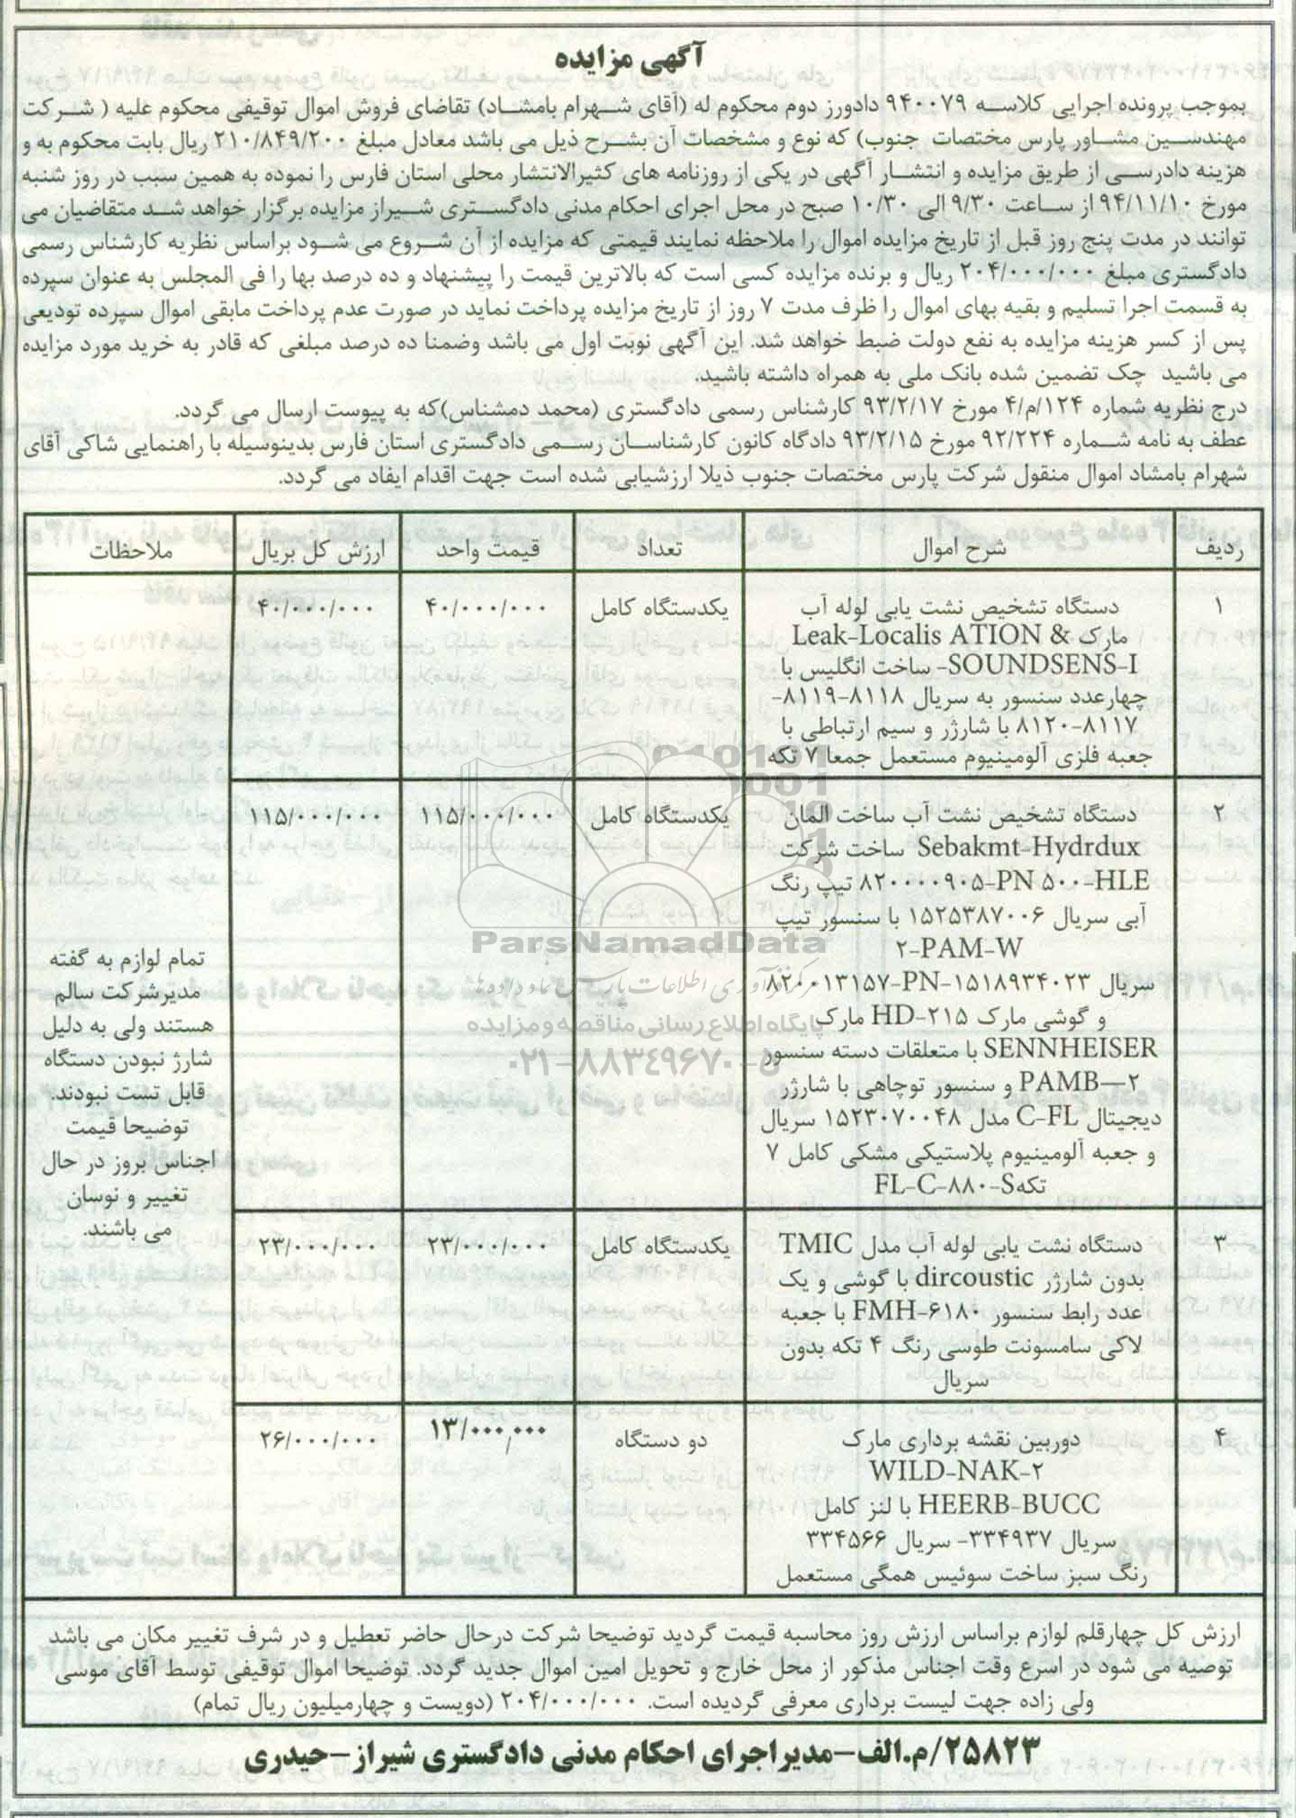 آگهی مزایده
بموجب پرونده اجرایی کلاسه ۹۴۰۰۷۹ دادورز دوم محکوم له (آقای شهرام بامشاد) تقاضای فروش اموال توقیفی محکوم علیه ( شرکت
مهندسین مشاور پارس مختصات جنوب) که نوع و مشخصات آن بشرح ذیل می باشد معادل مبلغ ۲۱۰/۸۴۹/۲۰۰ ریال بابت محکوم به و
هزینه دادرسی از طریق مزایده و انتشار آگهی در یکی از روزنامه های کثیرالانتشار محلی استان فارس را نموده به همین سبب در روز شنبه
مورخ ۹۴/۱۱/۱۰ از ساعت ۹/۳۰ الی ۱۰/۳۰ صبح در محل اجرای احکام مدنی دادگستری شیراز مزایده برگزار خواهد شد متقاضیان می
توانند در مدت پنج روز قبل از تاریخ مزایده اموال را ملاحظه نمایند قیمتی که مزایده از آن شروع می شود براساس نظریه کارشناس رسمی
دادگستری مبلغ ۲۰۴/۰۰۰/۰۰۰ ریال و برنده مزایده کسی است که بالاترین قیمت را پیشنهاد و ده درصد بها را فی المجلس به عنوان سپرده
به قسمت اجرا تسلیم و بقیه بهای اموال را ظرف مدت ۷ روز از تاریخ مزایده پرداخت نماید در صورت عدم پرداخت مابقی اموال سپرده تودیعی
پس از کسر هزینه مزایده به نفع دولت ضبط خواهد شد. این آگهی نوبت اول می باشد وضمنا ده درصد مبلغی که قادر به خرید مورد مزایده
می باشید چک تضمین شده بانک ملی به همراه داشته باشید.
درج نظریه شماره ۱۲۴/م/۴ مورخ ۹۳/۲/۱۷ کارشناس رسمی دادگستری (محمد دمشناس)که به پیوست ارسال می گردد.
عطف به نامه شماره ۹۲/۲۲۴ مورخ ۹۳/۲/۱۵ دادگاه کانون کارشناسان رسمی دادگستری استان فارس بدینوسیله با راهنمایی شاکی آقای
شهرام بامشاد اموال منقول شرکت پارس مختصات جنوب ذیلا ارزشیابی شده است جهت اقدام ایفاد می گردد.
ردیف شرح اموال تعداد قیمت واحد ارزش کل بریال ملاحظات
۱ دستگاه تشخیص نشت یابی لوله آب یکدستگاه کامل ۴۰/۰۰۰/۰۰۰ ۴۰/۰۰۰/۰۰۰
مارک Leak-Localis ATION &
SOUNDSENS-I- ساخت انگلیس با
چهارعدد سنسور به سریال ۸۱۱۸-۸۱۱۹-
۸۱۱۷-۸۱۲۰ با شارژر و سیم ارتباطی با
جعبه فلزی آلومینیوم مستعمل جمعا ۷ تکه
۲ دستگاه تشخیص نشت آب ساخت آلمان یکدستگاه کامل ۱۱۵/۰۰۰/۰۰۰ ۱۱۵/۰۰۰/۰۰۰
Sebakmt-Hydrdux ساخت شرکت
۸۲۰۰۰۰۹۰۵-PN ۵۰۰-HLE تیپ رنگ
آبی سریال ۱۵۲۵۳۸۷۰۰۶ با سنسور تیپ
۲-PAM-W
سریال ۱۵۱۸۹۳۴۰۲۳-PN-۸۲۰۰۱۳۱۵۷
و گوشی مارک HD-۲۱۵ مارک
SENNHEISER با متعلقات دسته سنسور
PAMB—۲ و سنسور توچاهی با شارژر
دیجیتال C-FL مدل ۱۵۲۳۰۷۰۰۴۸ سریال
و جعبه آلومینیوم پلاستیکی مشکی کامل ۷
تکه FL-C-۸۸۰-S
۳ دستگاه نشت یابی لوله آب مدل TMIC یکدستگاه کامل ۲۳/۰۰۰/۰۰۰ ۲۳/۰۰۰/۰۰۰
بدون شارژر dircoustic با گوشی و یک
عدد رابط سنسور FMH-۶۱۸۰ با جعبه
لاکی سامسونت طوسی رنگ ۴ تکه بدون
سریال
۴ دوربین نقشه برداری مارک دو دستگاه ۱۳/۰۰۰/۰۰۰ ۲۶/۰۰۰/۰۰۰
WILD-NAK-۲
HEERB-BUCC با لنز کامل
سریال ۳۳۴۹۳۷- سریال ۳۳۴۵۶۶
رنگ سبز ساخت سوئیس همگی مستعمل
تمام لوازم به گفته
مدیرشرکت سالم
هستند ولی به دلیل
شارژ نبودن دستگاه
قابل تست نبودند.
توضیحا قیمت
اجناس بروز در حال
تغییر و نوسان
می باشند.
ParsNamadData
پایگاه اطلاع رسانی مناقصه و مزایده
۰۲۱-۸۸۳۴۹۶۷۰-۵
ارزش کل چهارقلم لوازم براساس ارزش روز محاسبه قیمت گردید توضیحا شرکت درحال حاضر تعطیل و در شرف تغییر مکان می باشد
توصیه می شود در اسرع وقت اجناس مذکور از محل خارج و تحویل امین اموال جدید گردد. توضیحا اموال توقیفی توسط آقای موسی
ولی زاده جهت لیست برداری معرفی گردیده است. ۲۰۴/۰۰۰/۰۰۰ (دویست و چهارمیلیون ریال تمام)
۲۵۸۲۳/م.الف-مدیراجرای احکام مدنی دادگستری شیراز-حیدری